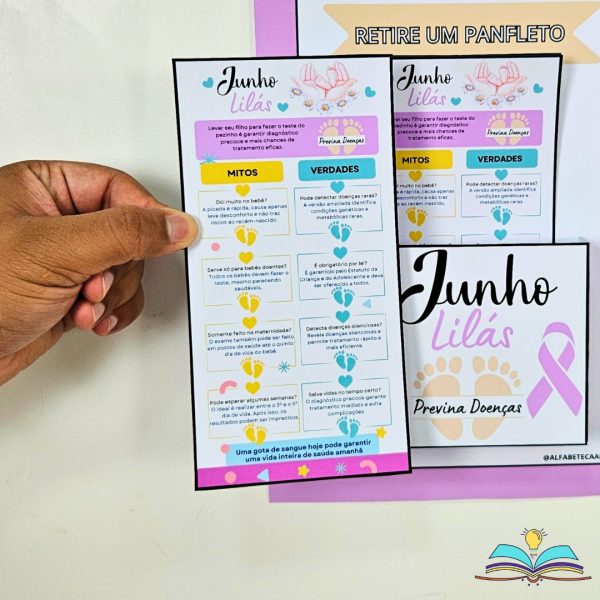 RETIRE UM PANFLETO
Junho
Lilás
Levar seu filho para fazer o teste do
pezinho é garantir diagnóstico
precoce e mais chances de
tratamento eficaz.
Previna Doenças
MITOS
VERDADES
Dói muito no bebê?
A picada é rápida, causa apenas
leve desconforto e não traz
riscos ao recém-nascido.
Pode detectar doenças raras?
A versão ampliada identifica
condições genéticas e
metabólicas raras.
Serve só para bebês doentes?
Todos os bebês devem fazer o
teste, mesmo parecendo
saudáveis.
É obrigatório por lei?
É garantido pelo Estatuto da
Criança e do Adolescente e deve
ser oferecido a todos.
Somente feito na maternidade?
O exame também pode ser feito
em postos de saúde até o quinto
dia de vida do bebê.
Detecta doenças silenciosas?
Revela doenças silenciosas e
permite tratamento rápido e
mais eficiente.
Pode esperar algumas semanas?
O ideal é realizar entre o 3º e o 5º
dia de vida. Após isso, os
resultados podem ser imprecisos.
Salva vidas no tempo certo?
O diagnóstico precoce garante
tratamento imediato e evita
complicações.
Uma gota de sangue hoje pode garantir
uma vida inteira de saúde amanhã
Junho
Lilás
para fazer o teste do
garantir diagnóstico
mais chances de
mento eficaz.
Previna Doenças
MITOS
VERDADES
muito no bebê?
é rápida, causa apenas
conforto e não traz
ao recém-nascido.
Pode detectar doenças raras?
A versão ampliada identifica
condições genéticas e
metabólicas raras.
Junho
Lilás
Previna Doenças
@ALFABETECAA